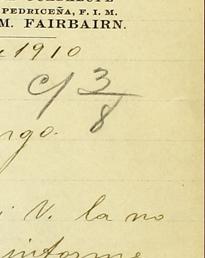 PEDRICEÑA, F. I. M.
M. FAIRBAIRN.
1910
c/ 3/8
rgo.
V. la no
informe